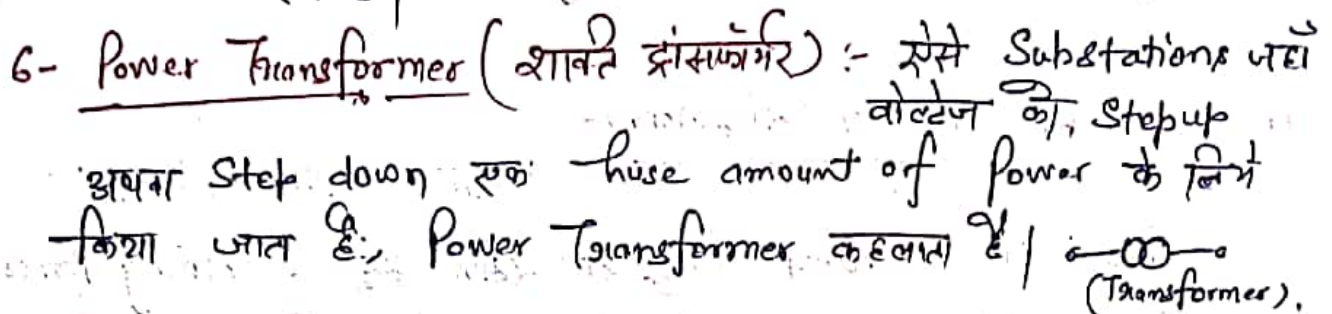 6- Power Transformer (शक्ति ट्रांसफॉर्मर) :- ऐसे Substations जहाँ
वोल्टेज को, Step up
अथवा Step down एक huse amount of Power के लिये
किया जाता है, Power Transformer कहलाता है |
(Transformer).